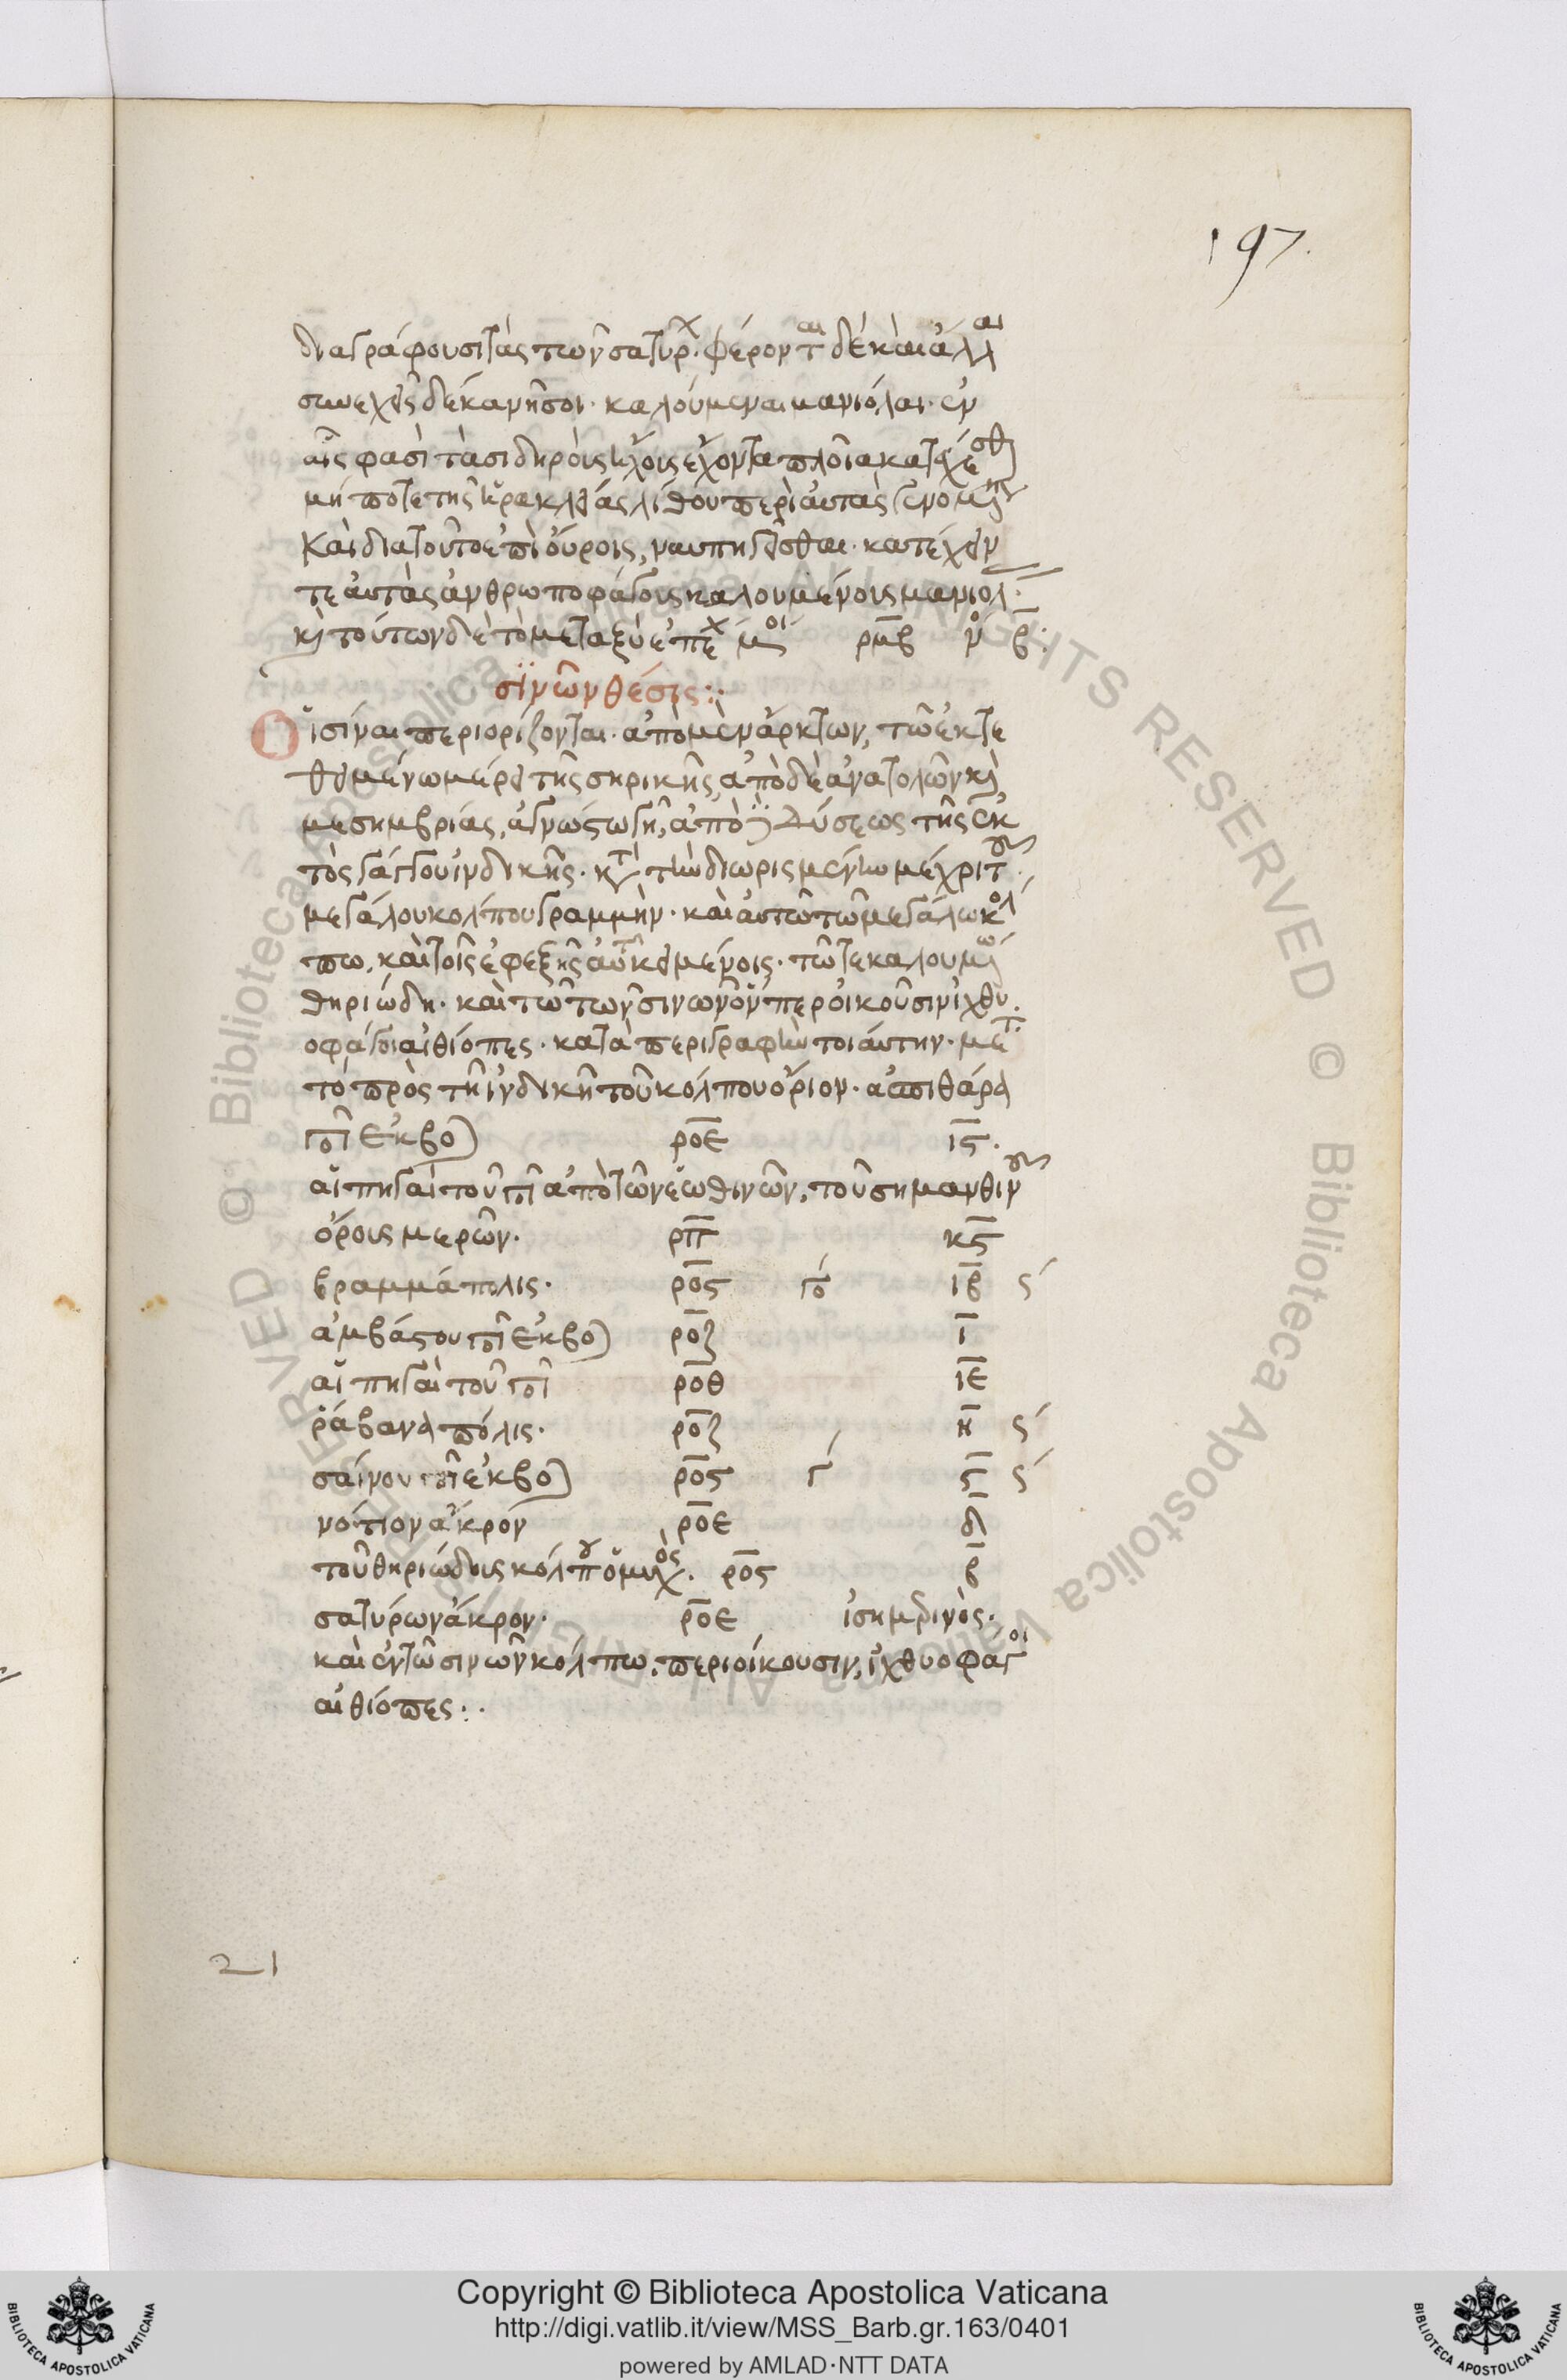 197.
διαγράφουσι τὰς τῶν σατύρ^χ. φέροντ^αι δὲ καὶ ἄλλ^αι
συνεχεῖς δέκα νῆσοι. καλούμεναι μανιόλαι. ἐν
αἷς φασὶ τὰ σιδηροῖς ἥλοις ἔχοντα πλοῖα κατέχεσθ
μή ποτε τῆς ἡρακλείας λίθου περὶ αὐτὰς γενομένης
καὶ διατοῦτο ἐπι οὔροις ναυπηγεῖσθαι. κατέχειν
τε αὐτὰς ἀνθρωποφάγους καλουμένους μανιολ.
κὶ τούτων δὲ τὸ μεταξὺ ἐπέ^χ μ^οι ρμβ ν^ο β.
σϊνῶν θέσις:
Οἱ σίναι περιορίζονται. ἀπὸ μὲν ἄρκτων, τῶ ἐκτε
θειμένω μέρει τῆς σηρικῆς, ἀπὸ δὲ ἀνατολῶν κὶ
μεσημβρίας, ἀγνώστω γῆ, ἀπὸ δὲ δύσεως τῆς ἐκ
τὸς γάγγου ἰνδικῆς. κτ τὴν διωρισμένην μέχρι τ
μεγάλου κόλπου γραμμὴν. καὶ αὐτῶ τῶ μεγάλω κολ
πω, καὶ τοῖς ἐφεξῆς αὐτ κειμένοις. τῶ τε καλουμ^ω
θηριώδη. καὶ τῶ τῶν σινῶν ὃν περοικοῦσιν ἰχθυ
οφάγοι αἰθίοπες. κατὰ περιγραφὴν τοιάυτην. μετ
τὸ πρὸς τῆ ἰνδικῆ τοῦ κόλπου ὅριον. ἀσπιθάρα
ποτ ἐκβο) ροε ις.
αἱ πηγαὶ τοῦ ποτ ἀπὸ τῶν ἑωθινῶν, τοῦ σημανθιν
ὄρους μερῶν. ρπ κς
βραμμά πόλις. ρος γο ιβ ς
ἀμβάστου ποτ ἐκβο) ροζ ι
αἱ πηγαὶ τοῦ ποτ ροθ ιε
ῥάβανα πόλις. ροζ η ς
σαίνου ποτ ἐκβο) ρος γ ς ς
νότιον ἄκρον ροε δ
τοῦ θηριώδους κόλπ^ου ὁ μυχ^ος. ρος β
σατύρων ἄκρον. ροε ἰσημρινὸς.
καὶ ἐν τῶ σινῶν κόλπω, περιοίκουσιν, ἰχθυοφάγ^οι
αἰθίοπες:.
21
Copyright © Biblioteca Apostolica Vaticana
http://digi.vatlib.it/view/MSS_Barb.gr.163/0401
powered by AMLAD·NTT DATA